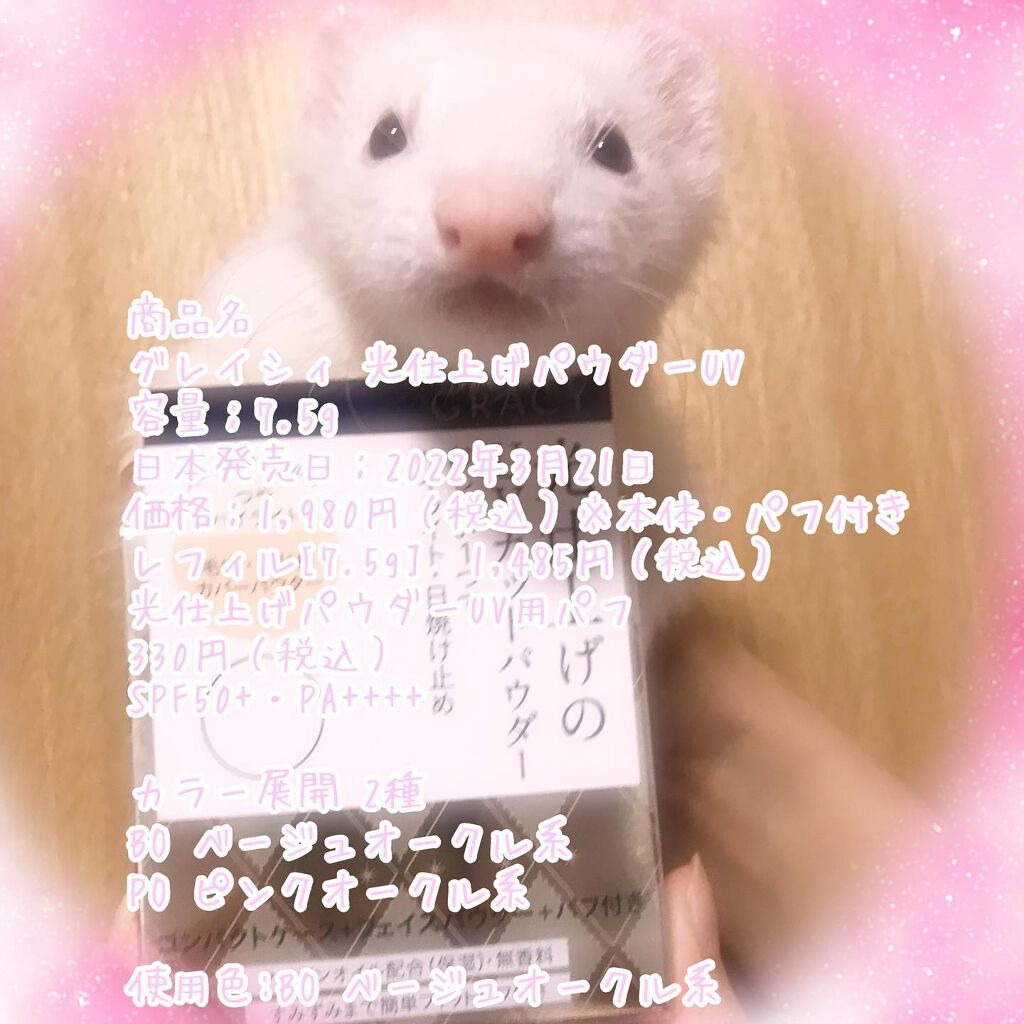 商品名
グレイシィ 光仕上げパウダーUV
容量；7.5g
日本発売日；2022年3月21日
価格；1,980円（税込）※本体・パフ付き
レフィル[7.5g] 1,485円（税込）
光仕上げパウダーUV用パフ
330円（税込）
SPF50+・PA++++
カラー展開 2種
BO ベージュオークル系
PO ピンクオークル系
使用色:BO ベージュオークル系
GRACY
げの
パウダー
日焼け止め
カバーパウダー
コンパクトケース+フェイスパウダー+パフ付き
オイル配合(保湿)・無香料